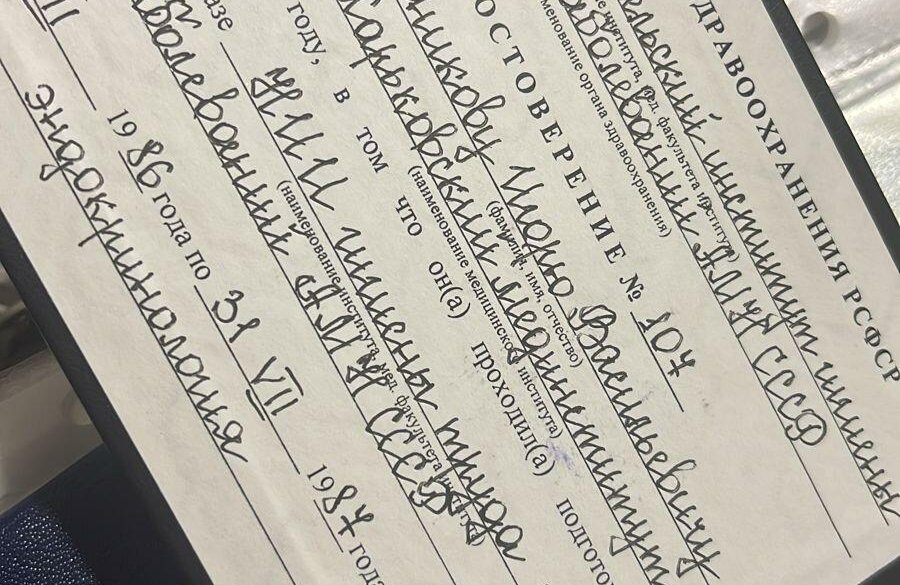 ДРАВООХРАНЕНИЯ РСФСР
ельский институт гигиены
е института, мед. факультета институт
аболеваний АМН СССР
менование органа здравоохранения)
ОСТОВЕРЕНИЕ № 104
никову Игорю Васильевичу
(фамилия, имя, отчество)
Харьковский мединститут
(наименование медицинского института)
году, в том что он(а) проходил(а) подгото
азе НИИ гигиены труда
(наименование института, мед. факультета
аболеваний АМН СССР
II 1986 года по 31 VII 1987 года
Эндокринология